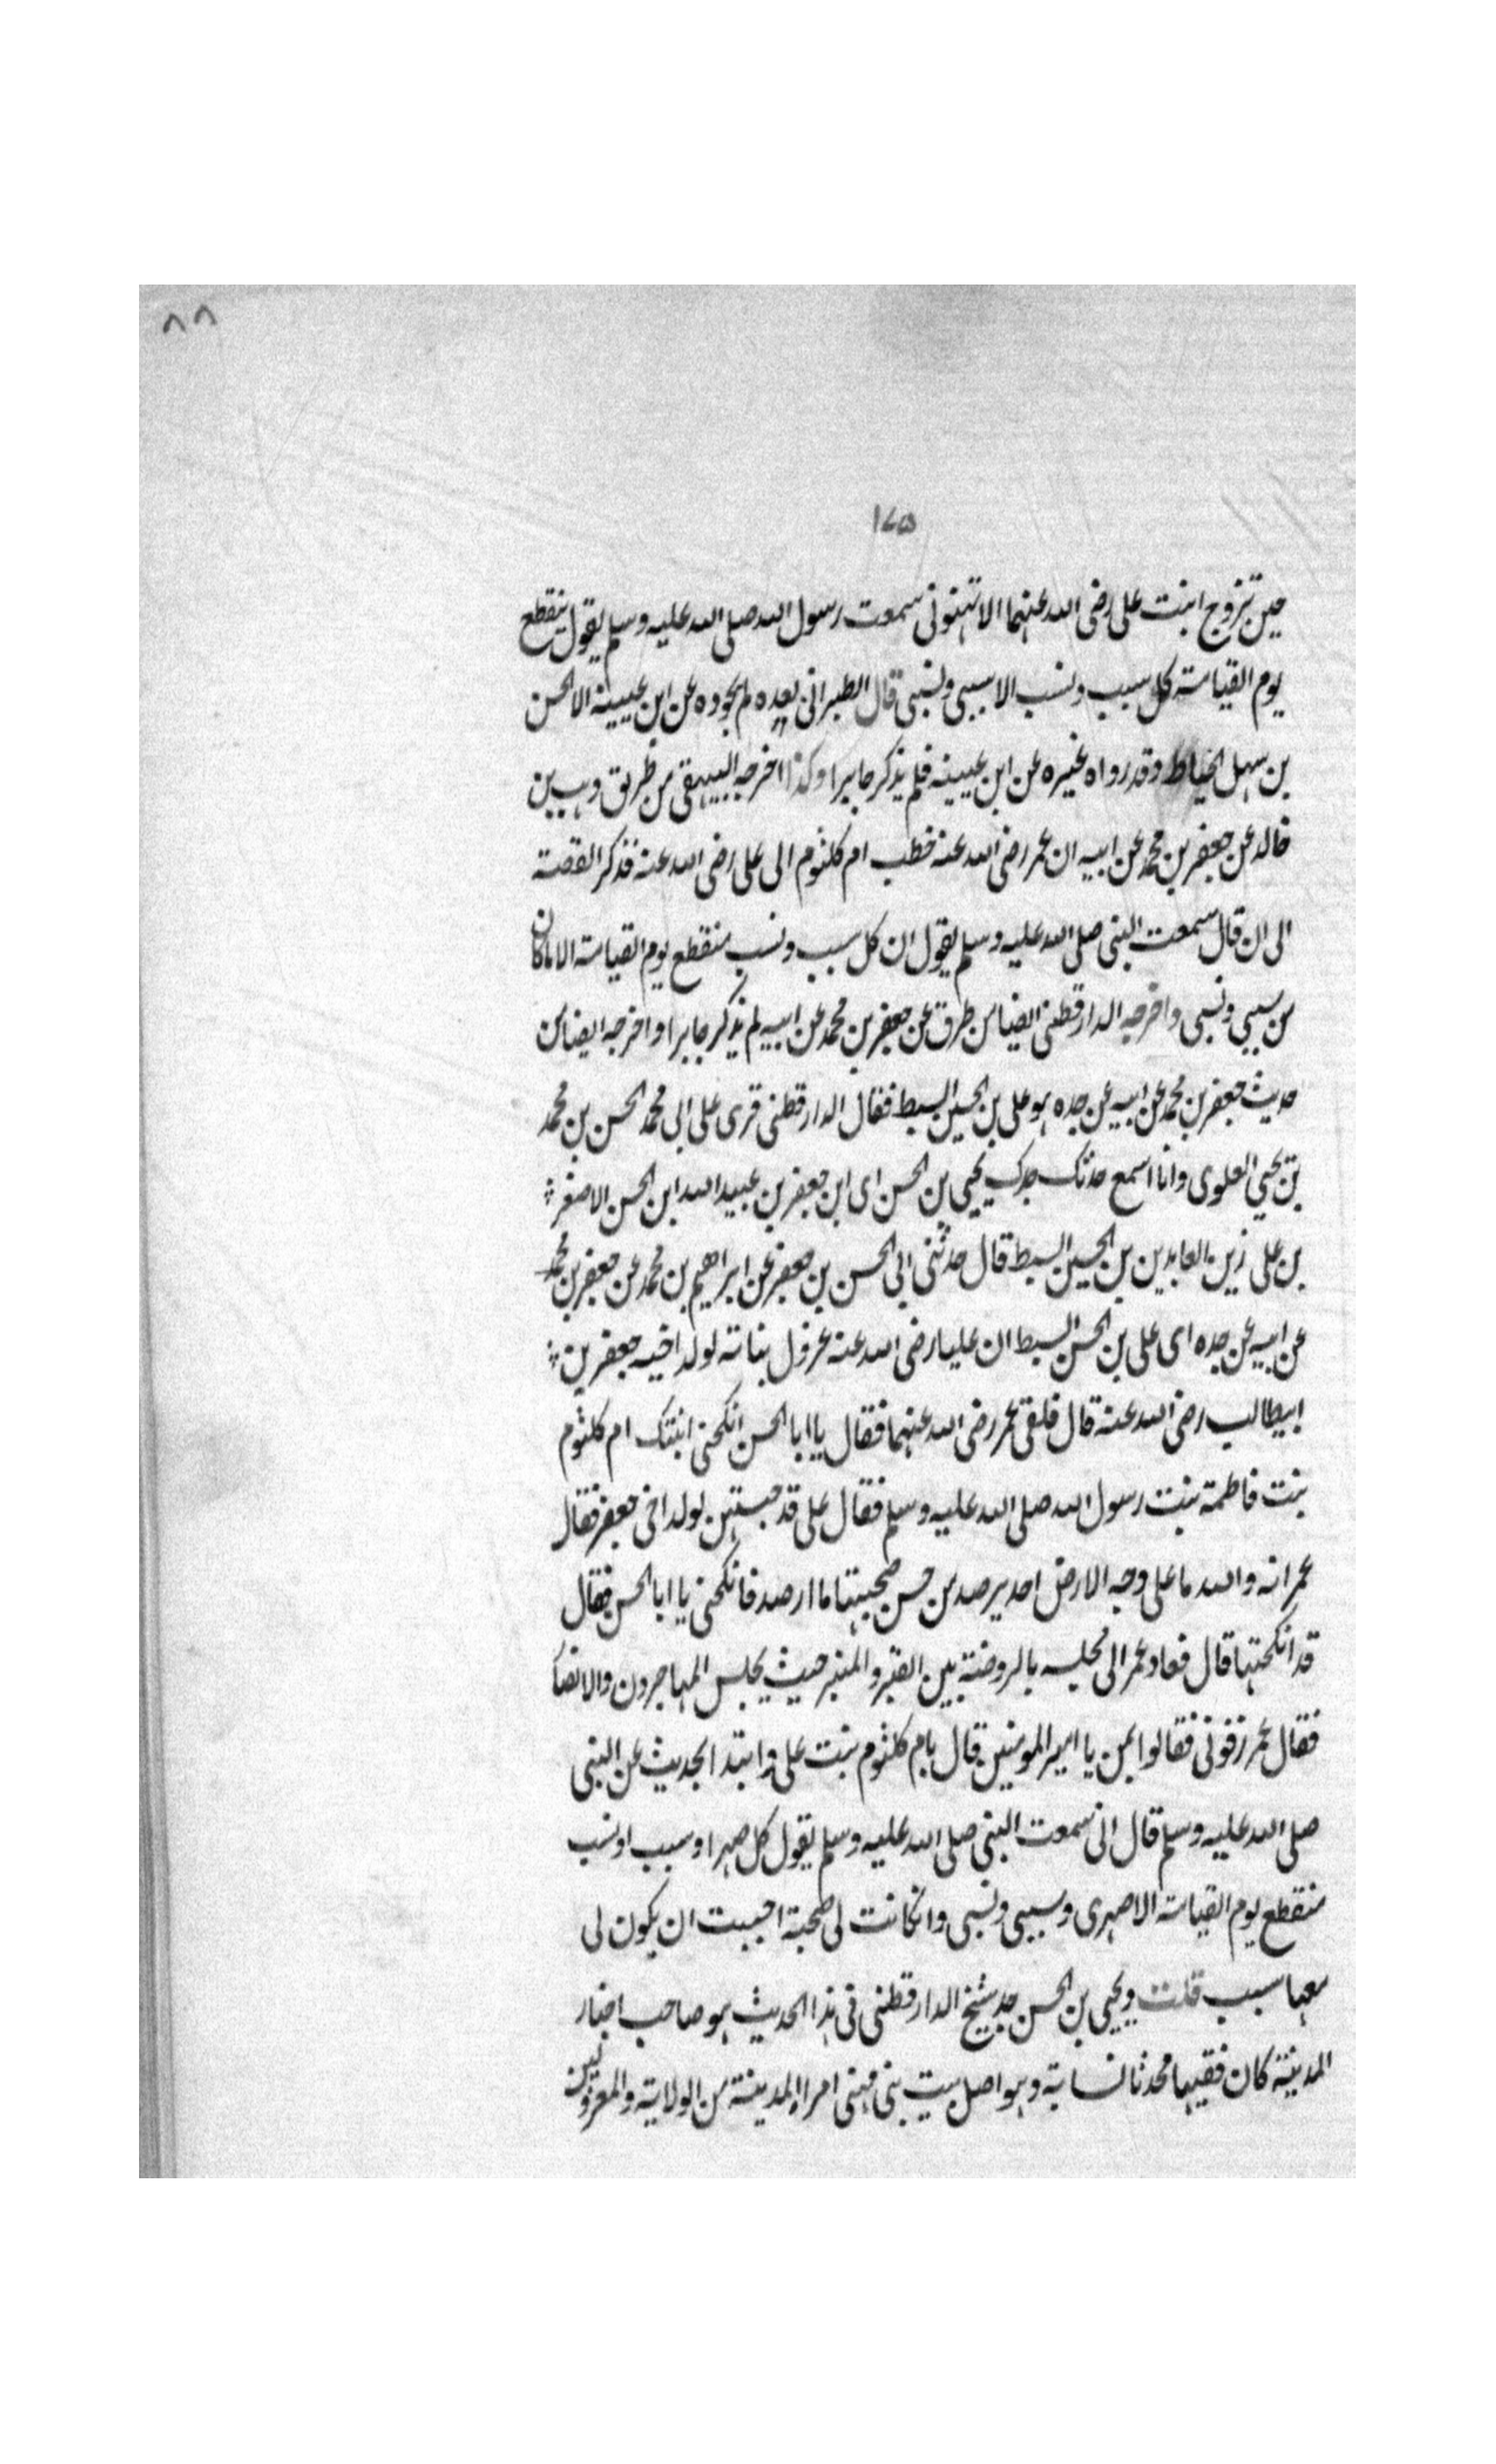 ٨٨
١٧٥
حين تزوج ابنت على رضى الله عنهما الا تهنونى سمعت رسول الله صلى الله عليه وسلم يقول ينقطع
يوم القيامة كل سبب ونسب الا سببى ونسبى قال الطبرانى بعده لم يجوده عن ابن عيينة الا الحسن
بن سهل الخياط وقد رواه غيره عن ابن عيينه فلم يذكر جابرا وكذا اخرجه البيهقى من طريق وهب بن
خالد عن جعفر بن محمد عن ابيه ان عمر رضى الله عنه خطب ام كلثوم الى على رضى الله عنه فذكر القصة
الى ان قال سمعت النبى صلى الله عليه وسلم يقول ان كل سبب ونسب منقطع يوم القيامة الا ماكان
من سببى ونسبى واخرجه الدارقطنى ايضا من طرق عن جعفر بن محمد عن ابيه لم يذكر جابرا واخرجه ايضا من
حديث جعفر بن محمد عن ابيه عن جده هو على بن الحسين السبط فقال الدارقطنى قرى على ابى محمد الحسن بن محمد
بن يحيى العلوى وانا اسمع حدثك جدك يحيى بن الحسن اى ابن جعفر بن عبيد الله ابن الحسن الاصغر
بن على زين العابدين بن الحسين السبط قال حدثنى ابى الحسن بن جعفر عن ابراهيم بن محمد عن جعفر بن محمد
عن ابيه عن جده اى على بن الحسن السبط ان عليا رضى الله عنه عزول بناته لولد اخيه جعفر بن
ابيطالب رضى الله عنه قال فلقى عمر رضى الله عنهما فقال يا ابا الحسن انكحنى ابنتك ام كلثوم
بنت فاطمة بنت رسول الله صلى الله عليه وسلم فقال على قد حبستهن لولد اخى جعفر فقال
عمر انه والله ما على وجه الارض احد يرصد من حسن صحبتها ما ارصد فانكحنى يا ابا الحسن فقال
قد انكحتها قال فعاد عمر الى مجلسه بالروضة بين القبر والمنبر حيث يجلس المهاجرون والانصا
فقال عمر زفونى فقالوا بمن يا امير المومنين قال بام كلثوم بنت على وابتدا الحديث عن النبى
صلى الله عليه وسلم قال انى سمعت النبى صلى الله عليه وسلم يقول كل صهر او سبب او نسب
منقطع يوم القيامة الا صهرى وسببى ونسبى وانكانت لى صحبة احببت ان يكون لى
معها سبب قلت ويحيى بن الحسن جد شيخ الدارقطنى فى هذا الحديث هو صاحب اخبار
المدينة كان فقيها محدثا نسابة وهو اصل بيت بنى مهنى امراء المدينة من الولاية والمعروفين